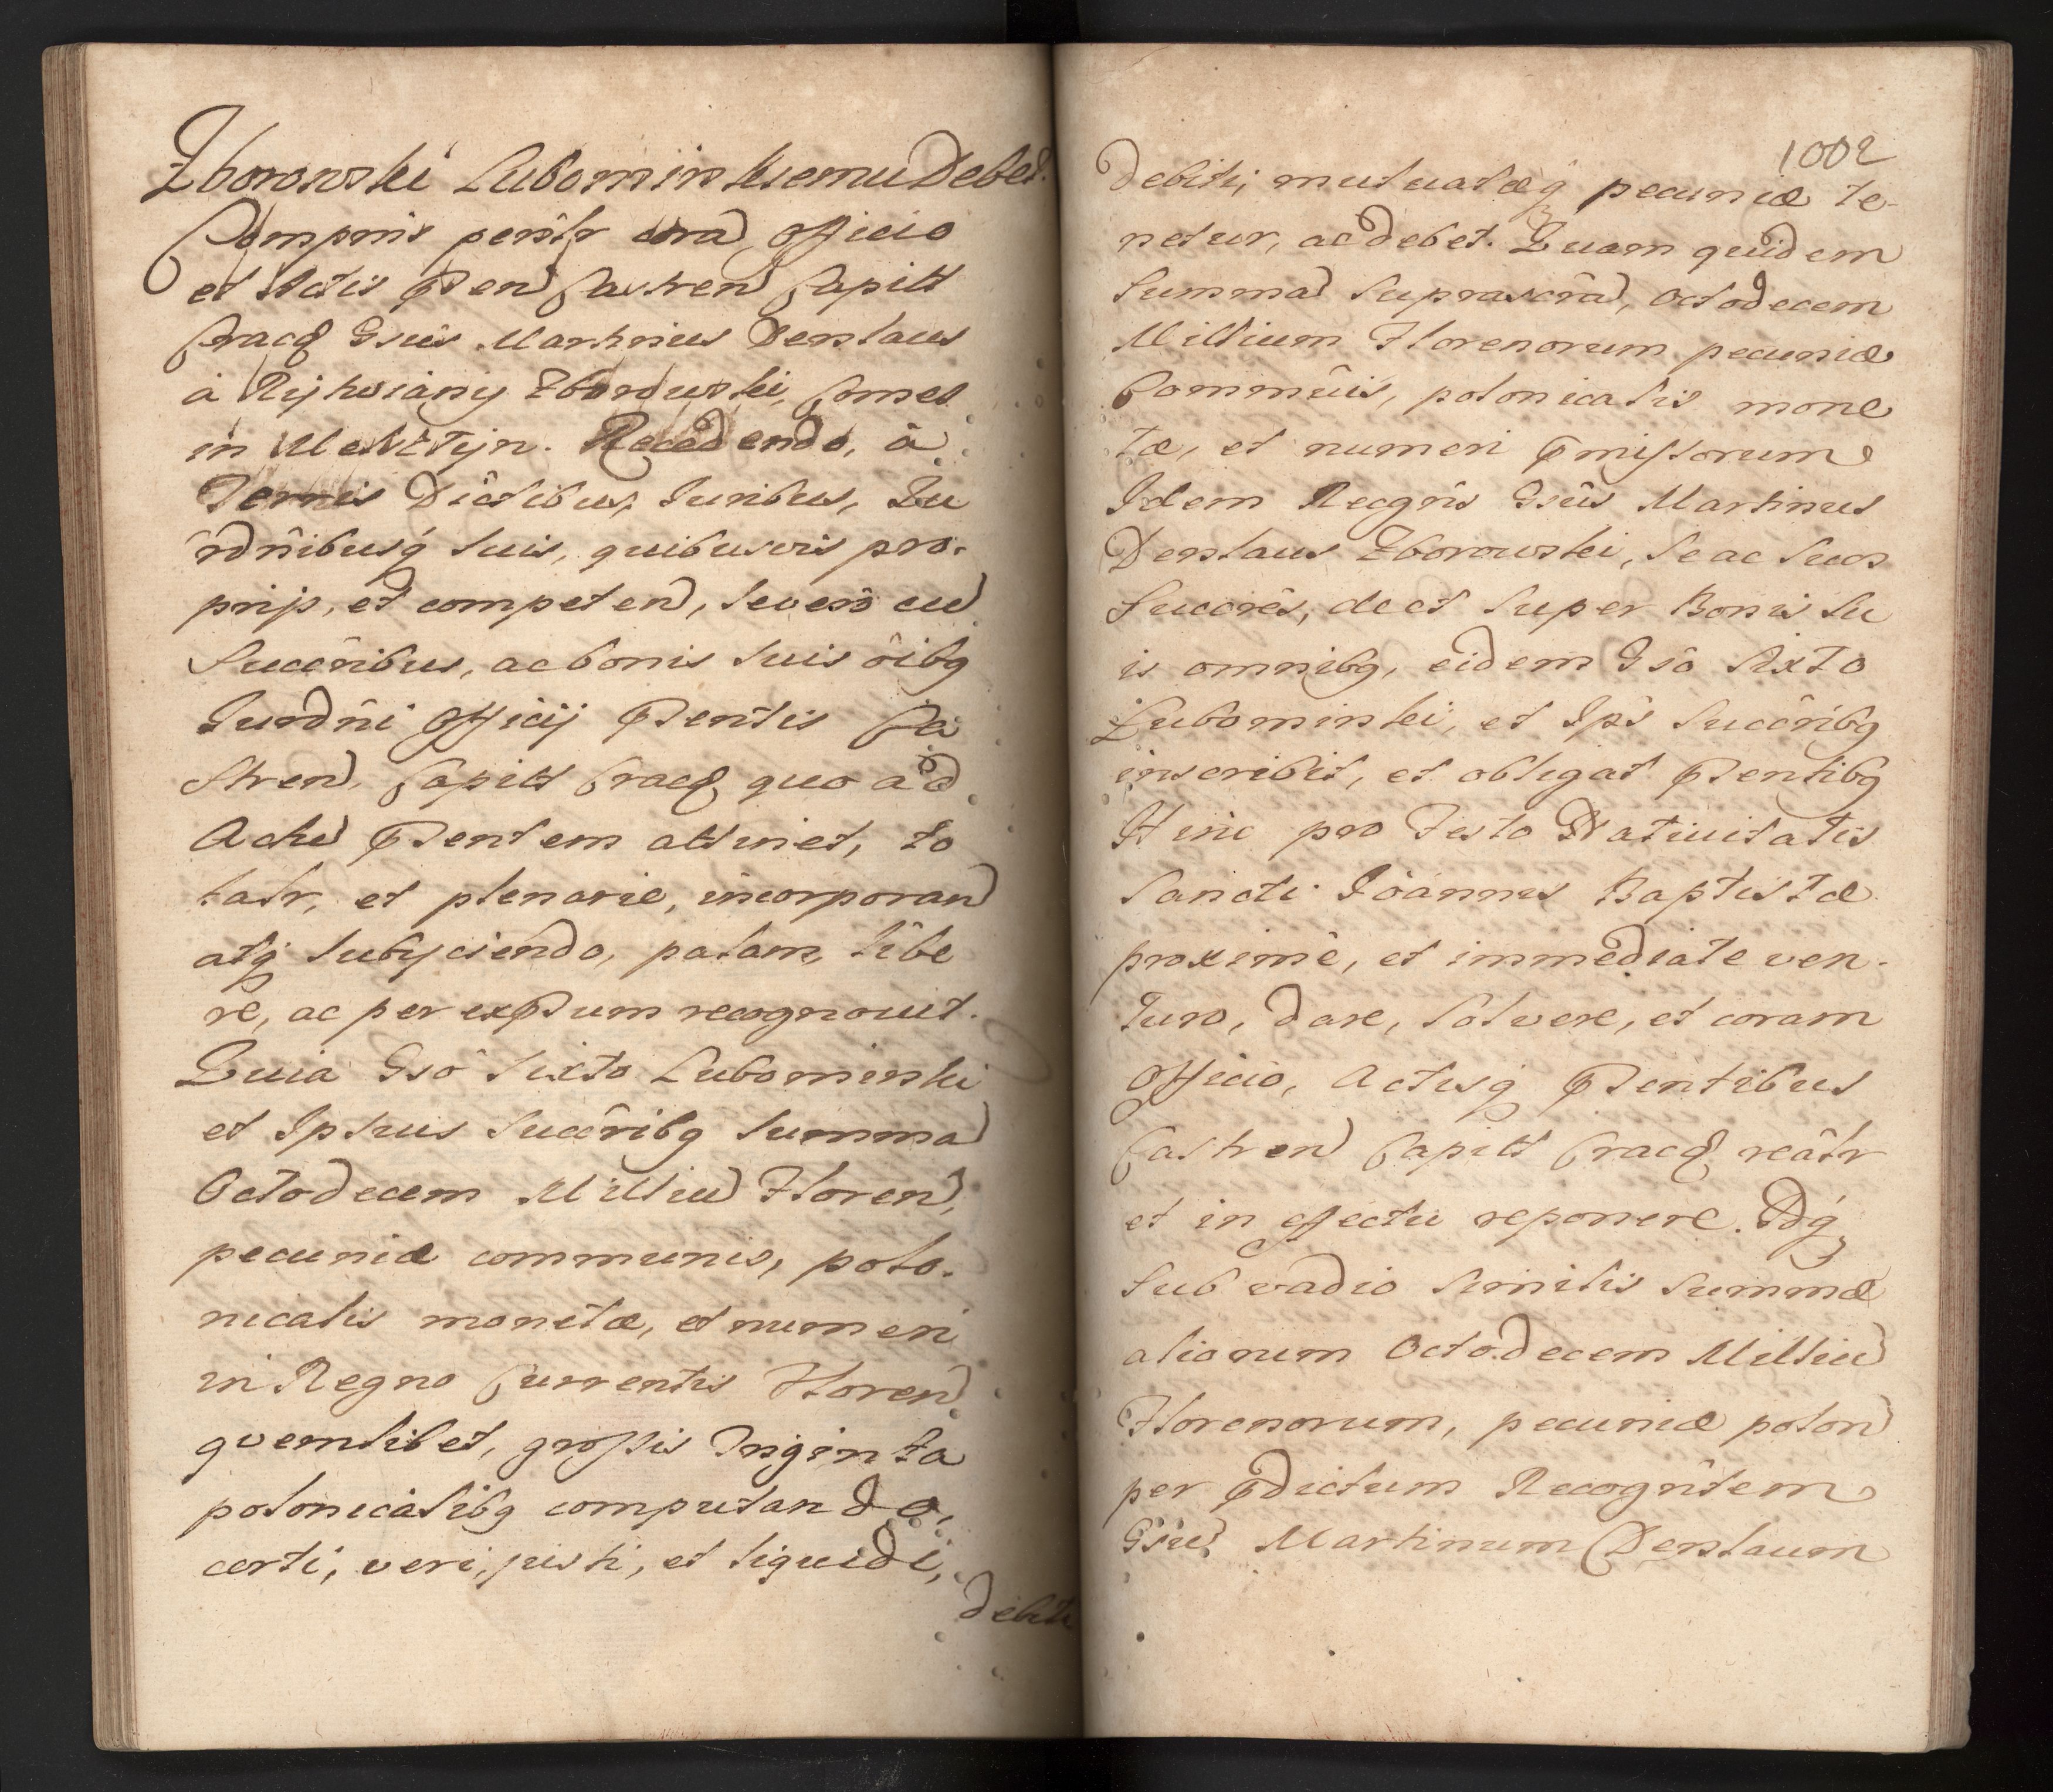 Zborowski Lubominskiemu Debet.
Comprns persltr corā Officio
et Actis pñsen Castren Capitt
Crac Gsus Martinus Denslaus
à Rÿtwiany Zborowski, Comes
in Melsztÿn. Recedendo, à
Terris Dictibus, Juribus, Ju
rdnibusq suis, quibusvis pro-
prijs, et competen, severō cū
Succribus, ac bonis suis oibq
Jurdni Officij Psentis Ca
stren Capitt Crac quo ad
Actū Psentem attinet, to
tatr, et plenarie, incorporan
atq subÿciendo, palam, libe
re, ac per expssum recognouit.
Quia Gso Sixto Lubominski
et Ipsius Succribq summā
Octodecem Milliū Floren,
pecuniæ communis, polo-
nicalis monetæ, et numeri
in Regno Currentis Floren
quemlibet, grossis Triginta
polonicalibq computando,
certi, veri, justi, et liquidi,
debiti
1002
Debiti, mutuatæq pecuniæ te-
netur, ac debet. Quam quidem
Summā Suprascrā, Octodecem
Millium Florenorum pecuniæ
Commuis, polonicalis mone
tæ, et numeri pmissorum
Idem Recgns Gsus Martinus
Denslaus Zborowski, se ac suos
Succres, de et super Bonis su
is omnibq, eidem Gso Sixto
Lubominski, et Ips Succribq
inscribit, et obligat Psentibq
Hinc pro Festo Natiuitatis
Sancti Joannis Baptistæ
proxime, et immediate ven-
turo, Dare, solvere, et coram
Officio, Actisq Psentibus
Castren Capitt Crac realr
et in effectu reponere. Idq
sub vadio similis summæ
aliorum Octodecem Milliū
Florenorum, pecuniæ polon
per pdictum Recogntem
Gsū Martinum Denslaum